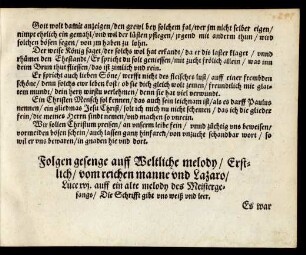 Gott wolt damit anzeigen / den grewl bey solchem fal / der jm nicht selber eigen /
nimpt ehelich ein gemahl / vnd wil der lüsten pflegen / jrgend mit anderm thun / wird
solchen bösen segen / von jm haben zu lohn.
Der weise König saget / der solchs wol hat erfande / da er die laster klaget / vnnd
rhümet den Ehestandt / Er spricht du solt geniessen / mit zucht frölich allein / was inn
deim Brun thut fliessen / das ist ziemlich vnd rein.
Er spricht auch lieben Söne / werfft nicht des fleisches lust / auff einer frembden
schöne / denn solchs ewr leben kost: ob sie dich gleich wolt zemen / freundlich mit glat-
tem mund / dein hertz wirstu verlehmen / denn sie hat viel verwundt.
Ein Christlich Mensch sol kennen / das auch sein leichnam ist / als es darff Paulus
nennen / ein gliedmas Jesu Christ / solt ich mich nu nicht schemen / das ich die glieder
fein / die meines Herrn sindt nemen / vnd machen so vnrein.
Wir sollen Christum preisen / an vnserm leibe fein / vnnd züchtig vns beweisen /
vormeiden bösen schein / auch lassen gantz hinfaren / von vnzucht schandbar wort / so
wil er vns bewaren / in gnaden hie vnd dort.
Folgen gesenge auff Weltliche melody / Erst-
lich / vom reichen manne vnd Lazaro /
Luce xvj. auff ein alte melody des Meisterge-
sangs / Die Schrifft gibt vns weiß vnd leer.
Es war